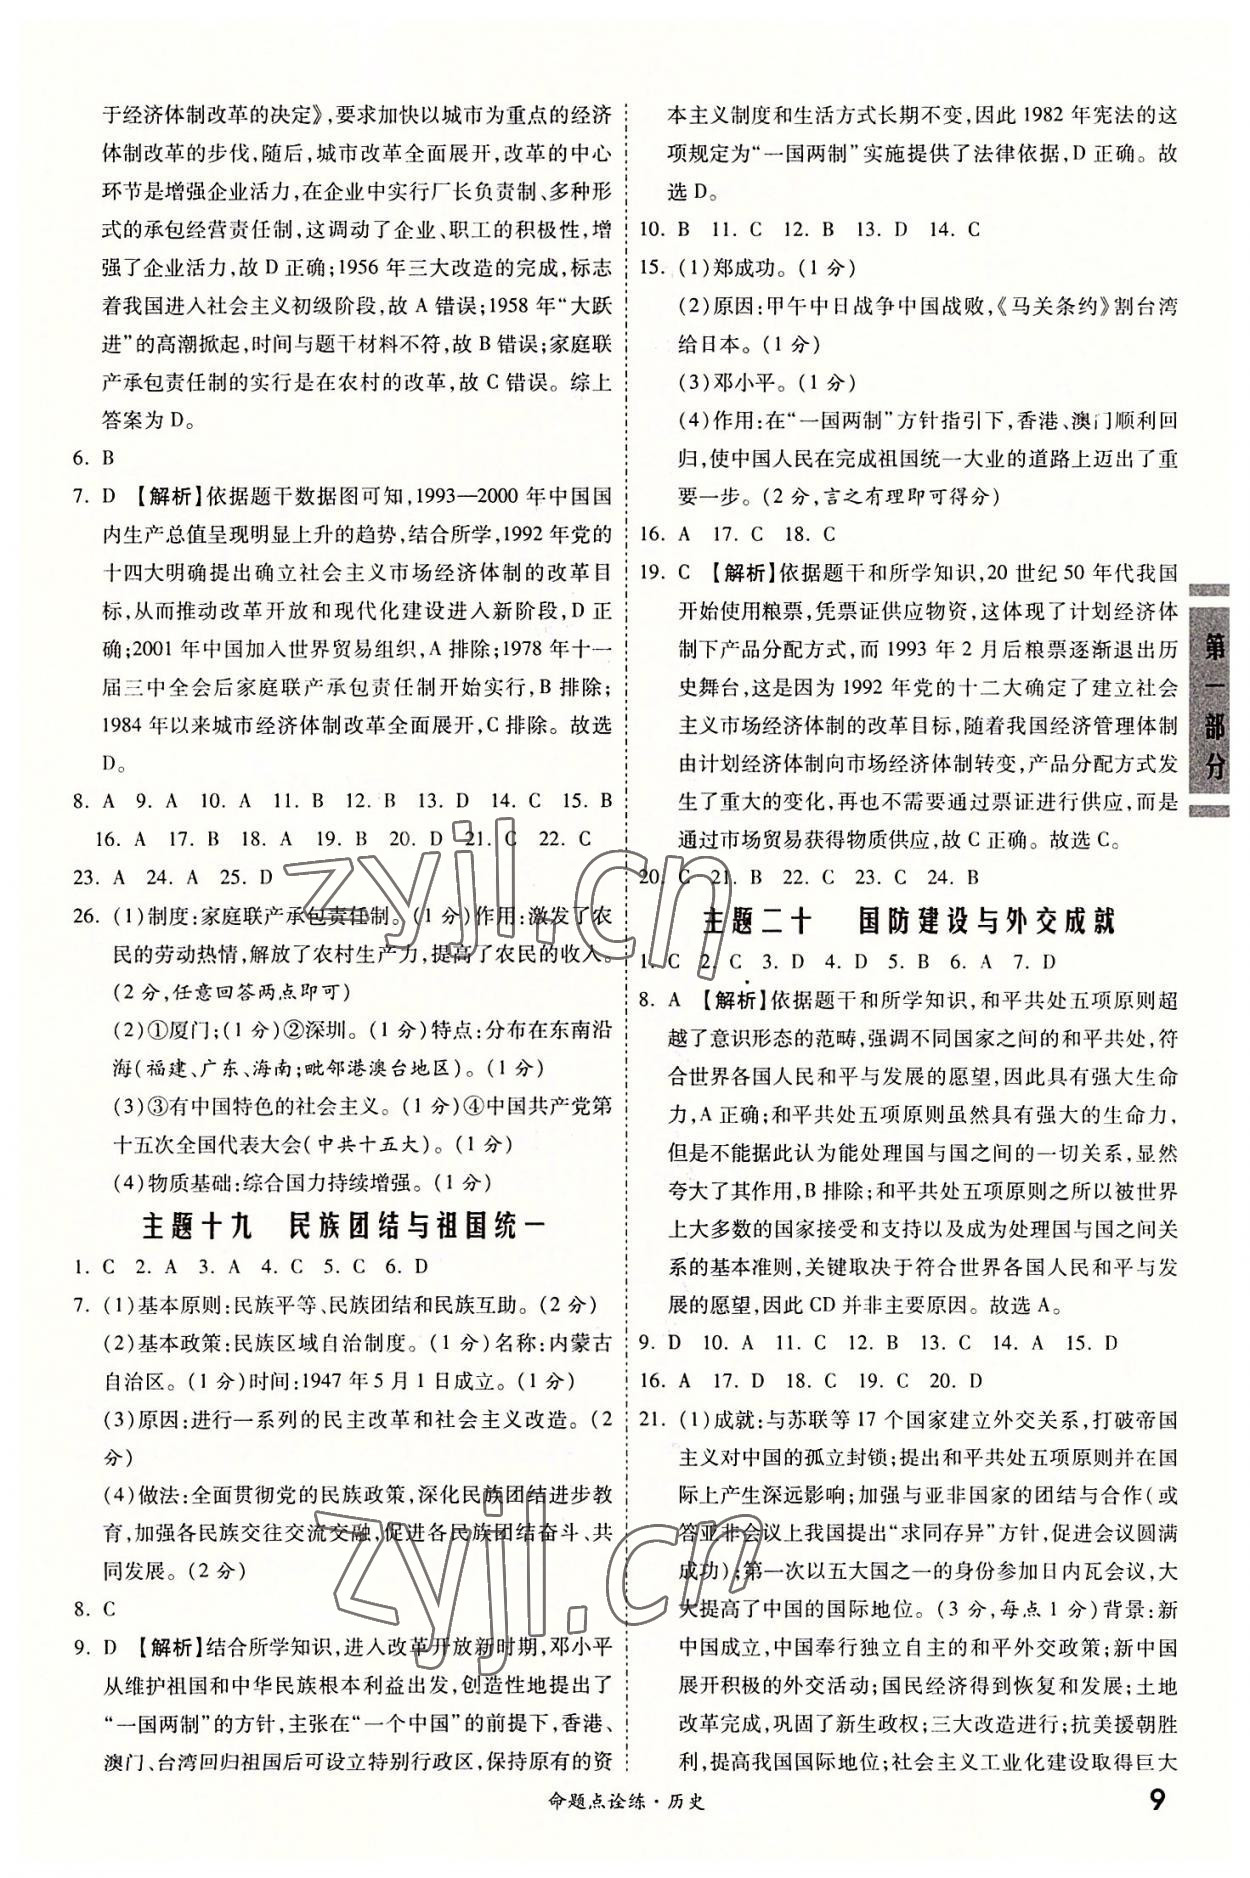 于经济体制改革的决定》,要求加快以城市为重点的经济
体制改革的步伐,随后,城市改革全面展开,改革的中心
环节是增强企业活力,在企业中实行厂长负责制、多种形
式的承包经营责任制,这调动了企业、职工的积极性,增
强了企业活力,故 D 正确;1956 年三大改造的完成,标志
着我国进入社会主义初级阶段,故 A 错误;1958 年“大跃
进”的高潮掀起,时间与题干材料不符,故 B 错误;家庭联
产承包责任制的实行是在农村的改革,故 C 错误。综上
答案为 D。
6. B
7. D 【解析】依据题干数据图可知,1993—2000 年中国国
内生产总值呈现明显上升的趋势,结合所学,1992 年党的
十四大明确提出确立社会主义市场经济体制的改革目
标,从而推动改革开放和现代化建设进入新阶段,D 正
确;2001 年中国加入世界贸易组织,A 排除;1978 年十一
届三中全会后家庭联产承包责任制开始实行,B 排除;
1984 年以来城市经济体制改革全面展开,C 排除。故选
D。
8. A 9. A 10. A 11. B 12. B 13. D 14. C 15. B
16. A 17. B 18. A 19. B 20. D 21. C 22. C
23. A 24. A 25. D
26. (1)制度:家庭联产承包责任制。(1 分)作用:激发了农
民的劳动热情,解放了农村生产力,提高了农民的收入。
(2 分,任意回答两点即可)
(2)①厦门;(1 分)②深圳。(1 分)特点:分布在东南沿
海(福建、广东、海南;毗邻港澳台地区)。(1 分)
(3)③有中国特色的社会主义。(1 分)④中国共产党第
十五次全国代表大会(中共十五大)。(1 分)
(4)物质基础:综合国力持续增强。(1 分)
主题十九 民族团结与祖国统一
1. C 2. A 3. A 4. C 5. C 6. D
7. (1)基本原则:民族平等、民族团结和民族互助。(2 分)
(2)基本政策:民族区域自治制度。(1 分)名称:内蒙古
自治区。(1 分)时间:1947 年 5 月 1 日成立。(1 分)
(3)原因:进行一系列的民主改革和社会主义改造。(2
分)
(4)做法:全面贯彻党的民族政策,深化民族团结进步教
育,加强各民族交往交流交融,促进各民族团结奋斗、共
同发展。(2 分)
8. C
9. D 【解析】结合所学知识,进入改革开放新时期,邓小平
从维护祖国和中华民族根本利益出发,创造性地提出了
“一国两制”的方针,主张在“一个中国”的前提下,香港、
澳门、台湾回归祖国后可设立特别行政区,保持原有的资
本主义制度和生活方式长期不变,因此 1982 年宪法的这
项规定为“一国两制”实施提供了法律依据,D 正确。故
选 D。
10. B 11. C 12. B 13. D 14. C
15. (1)郑成功。(1 分)
(2)原因:甲午中日战争中国战败,《马关条约》割台湾
给日本。(1 分)
(3)邓小平。(1 分)
(4)作用:在“一国两制”方针指引下,香港、澳门顺利回
归,使中国人民在完成祖国统一大业的道路上迈出了重
要一步。(2 分,言之有理即可得分)
16. A 17. C 18. C
19. C 【解析】依据题干和所学知识,20 世纪 50 年代我国
开始使用粮票,凭票证供应物资,这体现了计划经济体
制下产品分配方式,而 1993 年 2 月后粮票逐渐退出历
史舞台,这是因为 1992 年党的十二大确定了建立社会
主义市场经济体制的改革目标,随着我国经济管理体制
由计划经济体制向市场经济体制转变,产品分配方式发
生了重大的变化,再也不需要通过票证进行供应,而是
通过市场贸易获得物质供应,故 C 正确。故选 C。
20. C 21. B 22. C 23. C 24. B
主题二十 国防建设与外交成就
1. C 2. C 3. D 4. D 5. B 6. A 7. D
8. A 【解析】依据题干和所学知识,和平共处五项原则超
越了意识形态的范畴,强调不同国家之间的和平共处,符
合世界各国人民和平与发展的愿望,因此具有强大生命
力,A 正确;和平共处五项原则虽然具有强大的生命力,
但是不能据此认为能处理国与国之间的一切关系,显然
夸大了其作用,B 排除;和平共处五项原则之所以被世界
上大多数的国家接受和支持以及成为处理国与国之间关
系的基本准则,关键取决于符合世界各国人民和平与发
展的愿望,因此 CD 并非主要原因。故选 A。
9. D 10. A 11. C 12. B 13. C 14. A 15. D
16. A 17. D 18. C 19. C 20. D
21. (1)成就:与苏联等 17 个国家建立外交关系,打破帝国
主义对中国的孤立封锁;提出和平共处五项原则并在国
际上产生深远影响;加强与亚非国家的团结与合作(或
答亚非会议上我国提出“求同存异”方针,促进会议圆满
成功);第一次以五大国之一的身份参加日内瓦会议,大
大提高了中国的国际地位。(3 分,每点 1 分)背景:新
中国成立,中国奉行独立自主的和平外交政策;新中国
展开积极的外交活动;国民经济得到恢复和发展;土地
改革完成,巩固了新生政权;三大改造进行;抗美援朝胜
利,提高我国国际地位;社会主义工业化建设取得巨大
第一部分
命题点诠练·历史
9
zyjl.cn
zyjl.cn